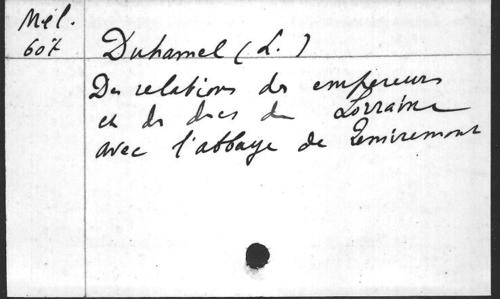 Mél.
607
Duhamel (L.)
Des relations des empereurs
et des ducs de Lorraine
avec l'abbaye de Remiremont